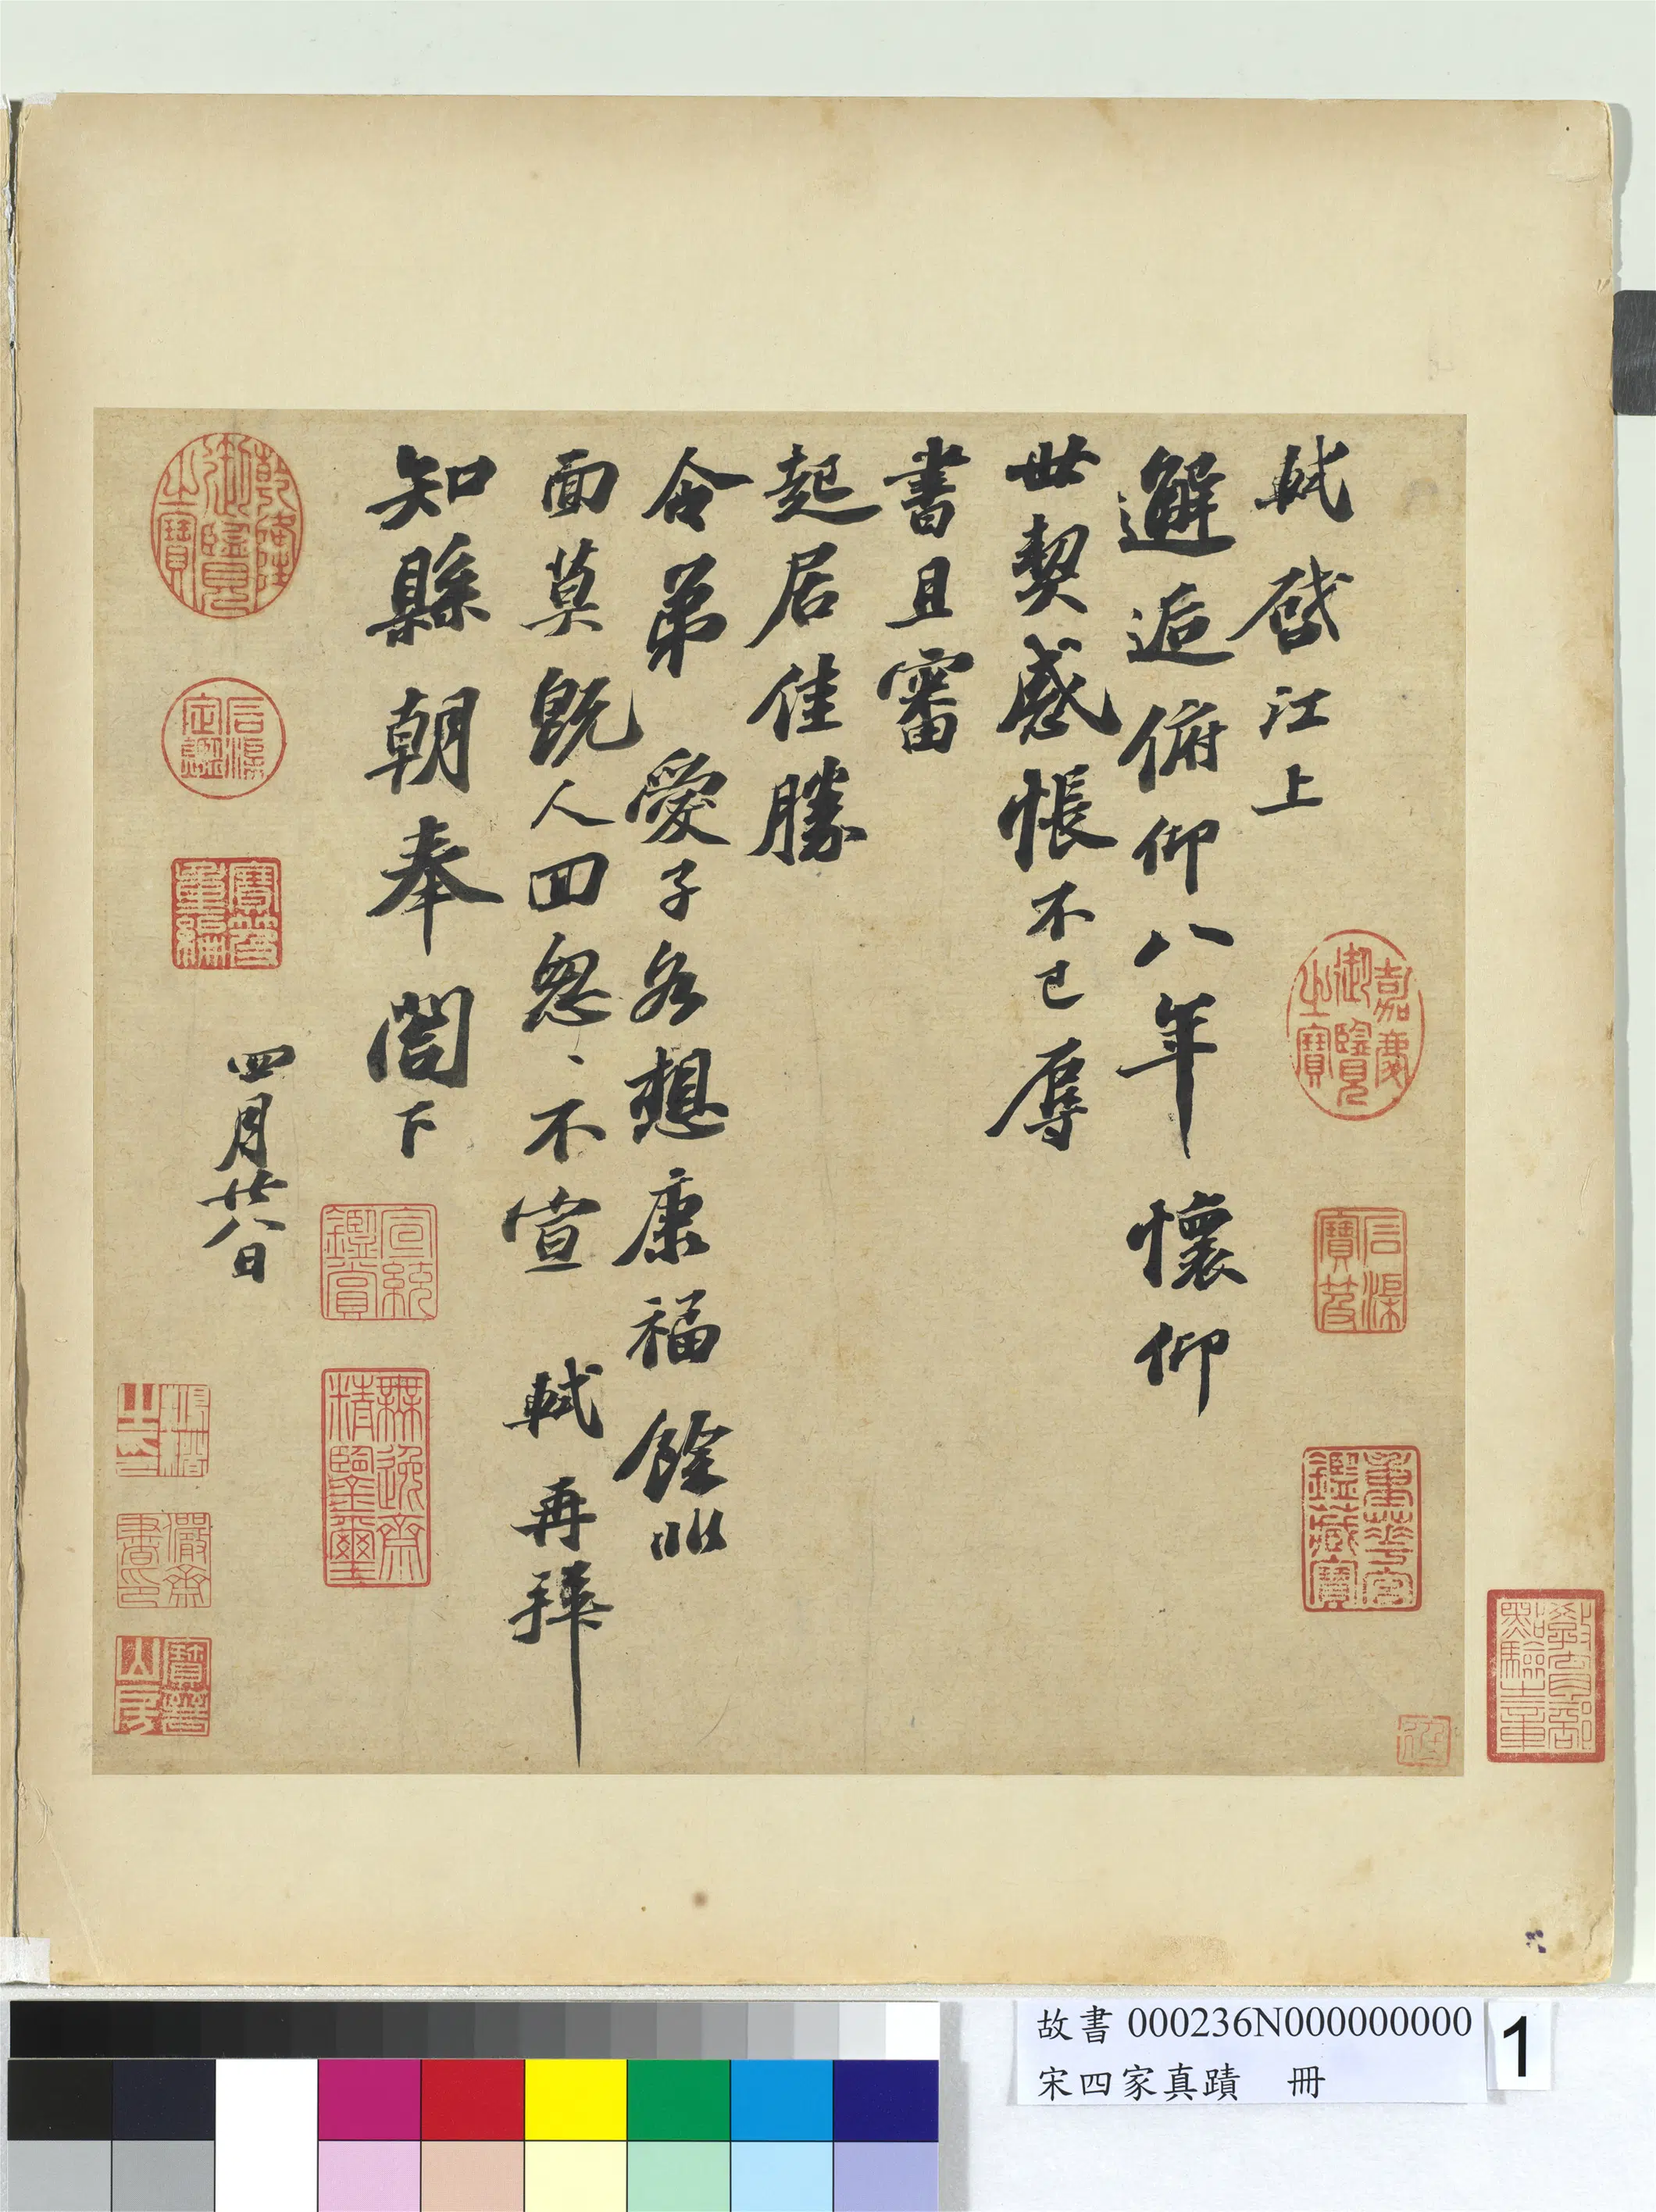 軾啓江上
邂逅俯仰八年懷仰
世契感悵不已辱
書且審
起居佳勝
令弟愛子各想康福餘非
面莫既人回怱、不宣 軾再拜
知縣朝奉閤下
四月廿八日
乾隆御覽之寶
石渠定鑑
寶笈重編
宣統鑑賞
無逸齋精鑒璽
儼齋
嘉慶御覽之寶
石渠寶笈
重華宮鑑藏寶
教育部點驗之章
故書 000236N000000000
宋四家真蹟 冊
1